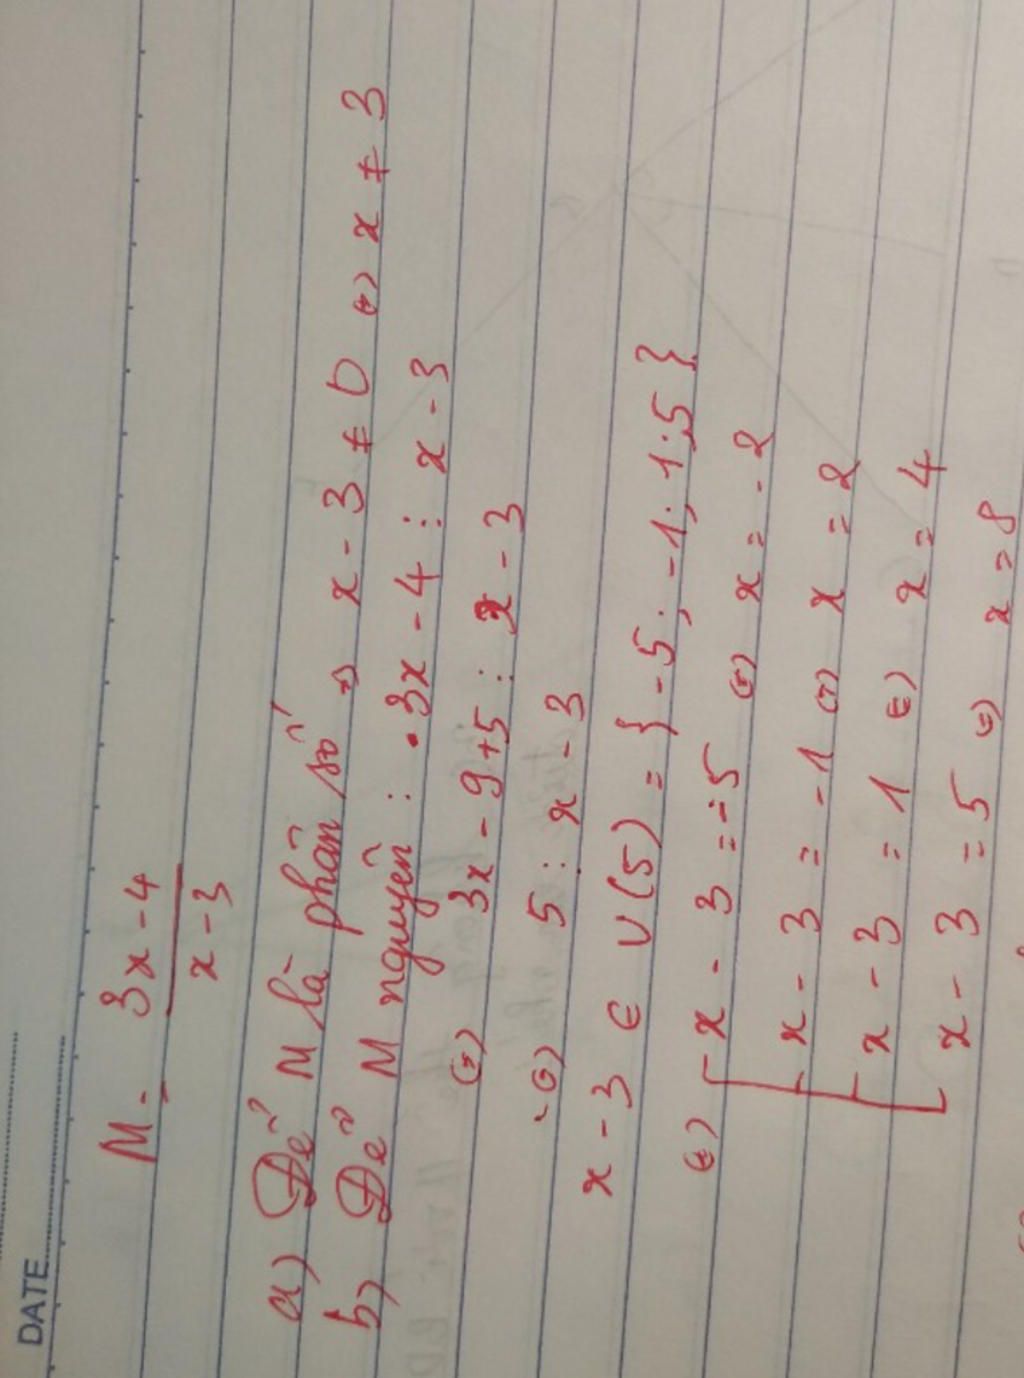 DATE
M = 3x - 4
x - 3
a) Để M là phân số => x - 3 ≠ 0 <=> x ≠ 3
b) Để M nguyên : 3x - 4 ⋮ x - 3
<=> 3x - 9 + 5 ⋮ x - 3
<=> 5 ⋮ x - 3
x - 3 ∈ U(5) = { -5 ; -1 ; 1 ; 5 }
<=> x - 3 = -5 <=> x = -2
x - 3 = -1 <=> x = 2
x - 3 = 1 <=> x = 4
x - 3 = 5 <=> x = 8